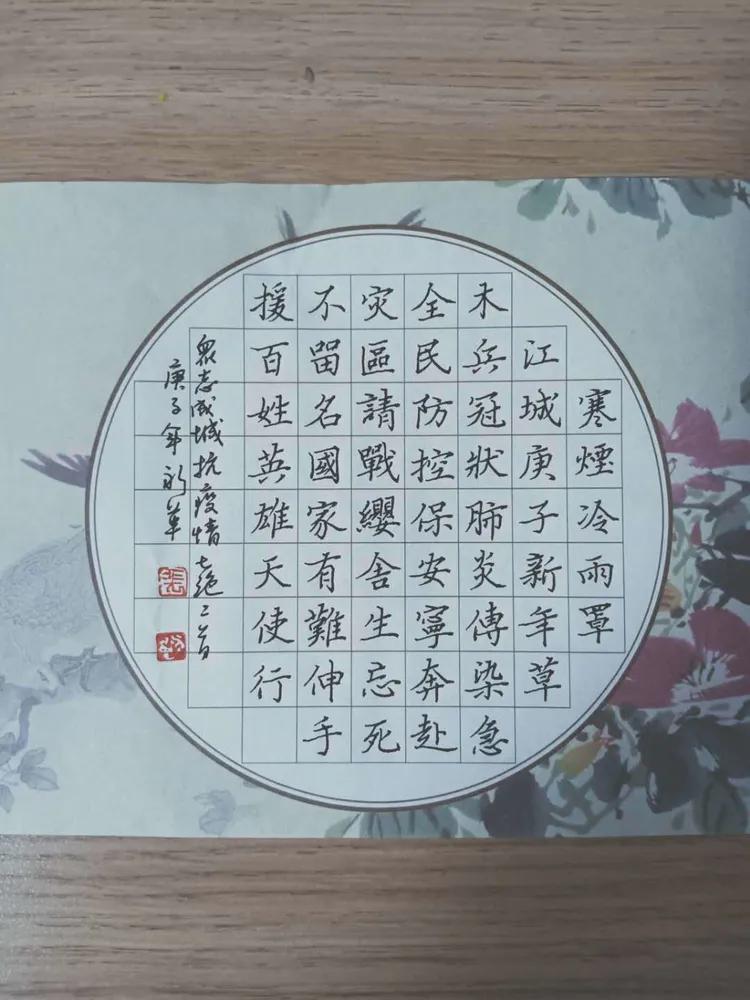 寒煙冷雨罩
江城庚子新年草
木兵冠狀肺炎傳染急
全民防控保安寧奔赴
灾區請戰纓舍生忘死
不留名國家有難伸手
援百姓英雄天使行
眾志成城抗疫情七絶二首
庚子年